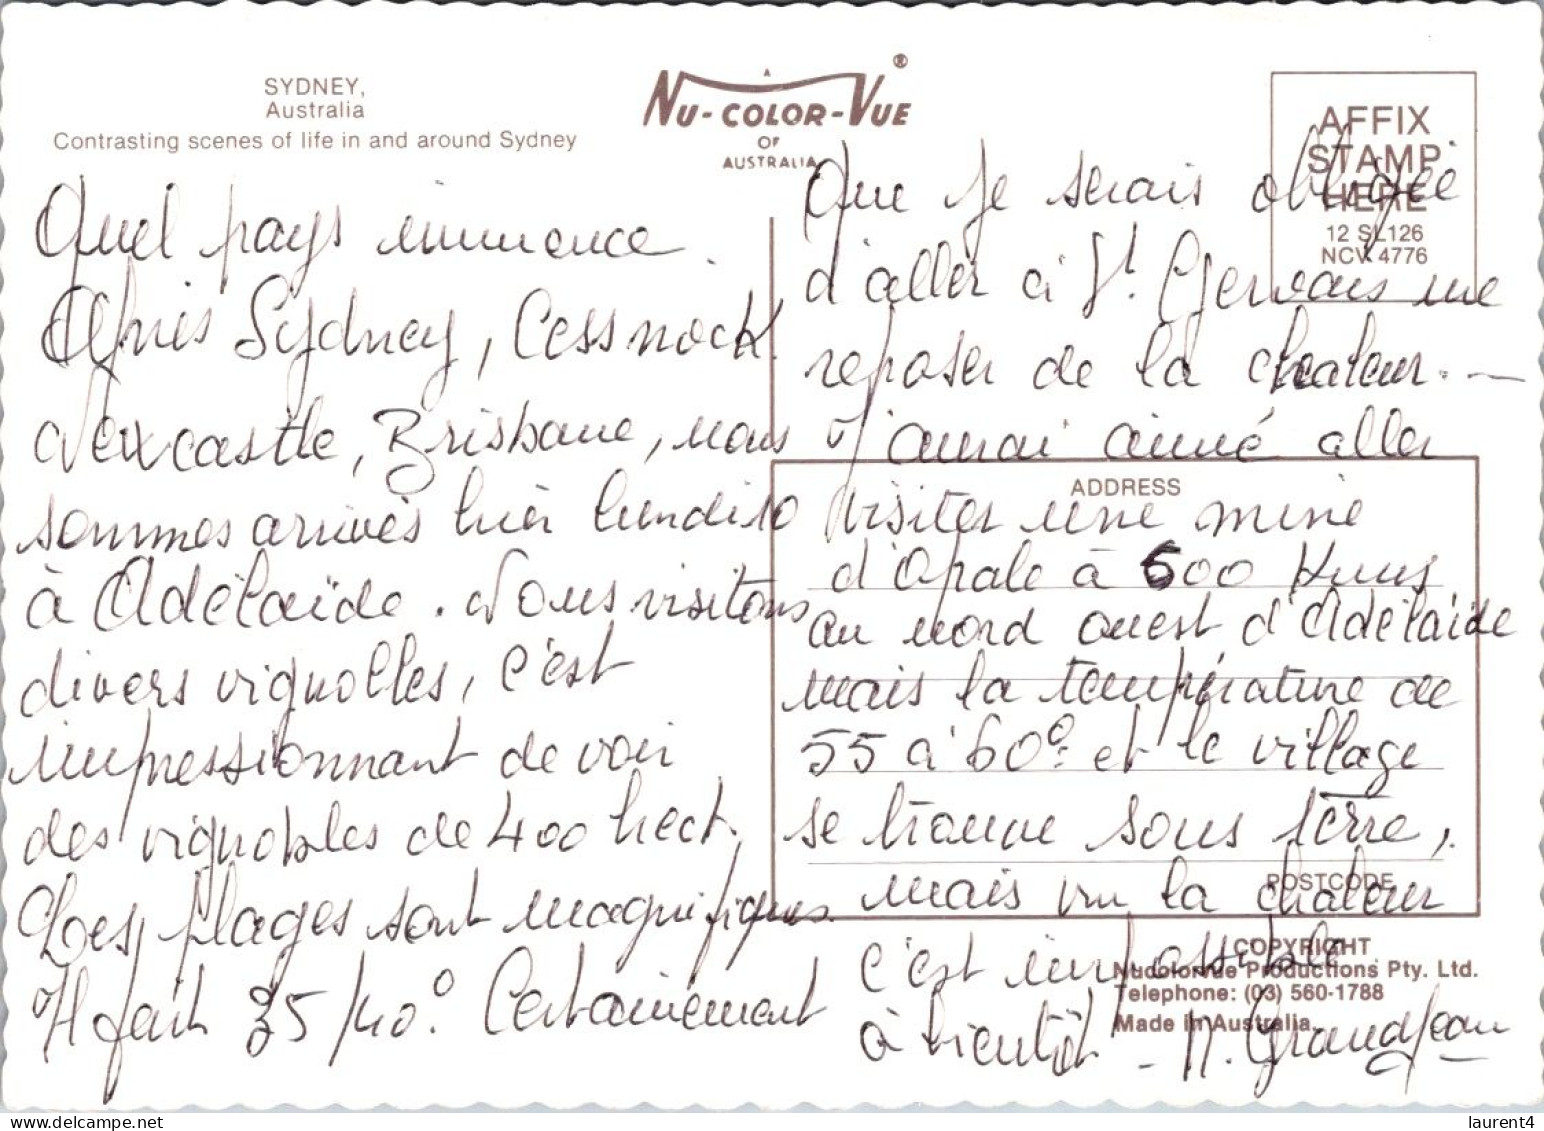 SYDNEY,
Australia
Contrasting scenes of life in and around Sydney
A
NU-COLOR-VUE®
OF
AUSTRALIA
AFFIX
STAMP
HERE
12 SL126
NCV 4776
Quel pays immence.
Après Sydney, Cessnock
Newcastle, Brisbane, nous
sommes arrivés hier lundi 10
à Adélaïde. Nous visitons
divers vignobles, c'est
impressionnant de voir
des vignobles de 400 hect.
Les plages sont magnifiques.
Il fait 35/40°. Certainement
Que je serais obligée
d'aller à St. Gervais me
reposer de la chaleur. —
J'aurai aimé aller
visiter une mine
d'Opale à 600 Kms
au nord ouest d'Adélaïde
mais la température de
55 à 60° et le village
se trouve sous terre,
mais vu la chaleur
c'est impossible.
à bientôt - M. Grandjean
ADDRESS
POSTCODE
COPYRIGHT
Nucolorvue Productions Pty. Ltd.
Telephone: (03) 560-1788
Made in Australia.
laurent4